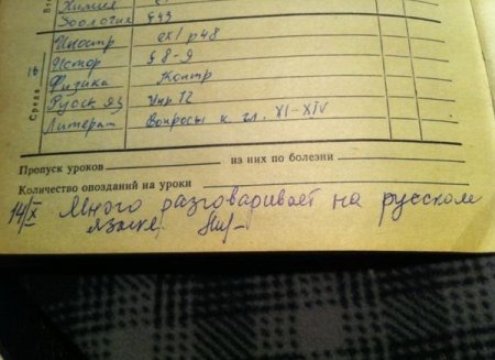 Вт
Химия
Зоология §43
Среда 16
Иностр ex1 p48
Истор § 8-9
Физика Контр
Русск яз Упр 12
Литерат Вопросы к гл. XI-XIV
Пропуск уроков из них по болезни
Количество опозданий на уроки
14/X Много разговаривает на русском
языке.